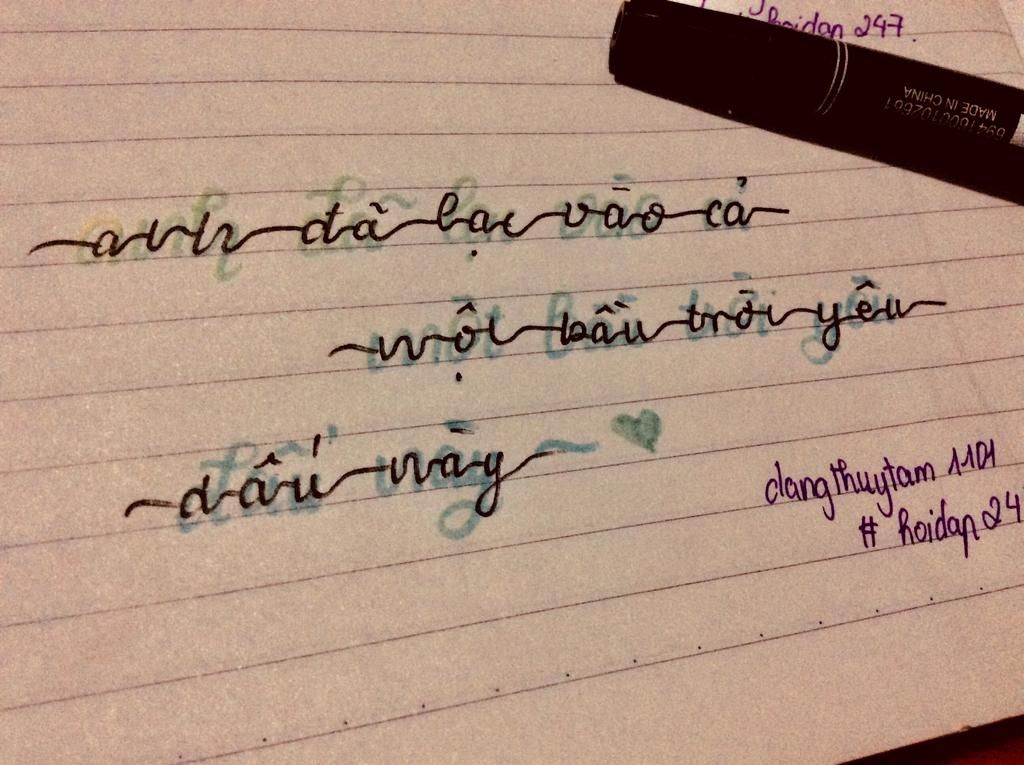 hoidap 247.
MADE IN CHINA
anh đã lạc vào cả
một bầu trời yêu
dấu này
dangthuytam 1101
# hoidap 24